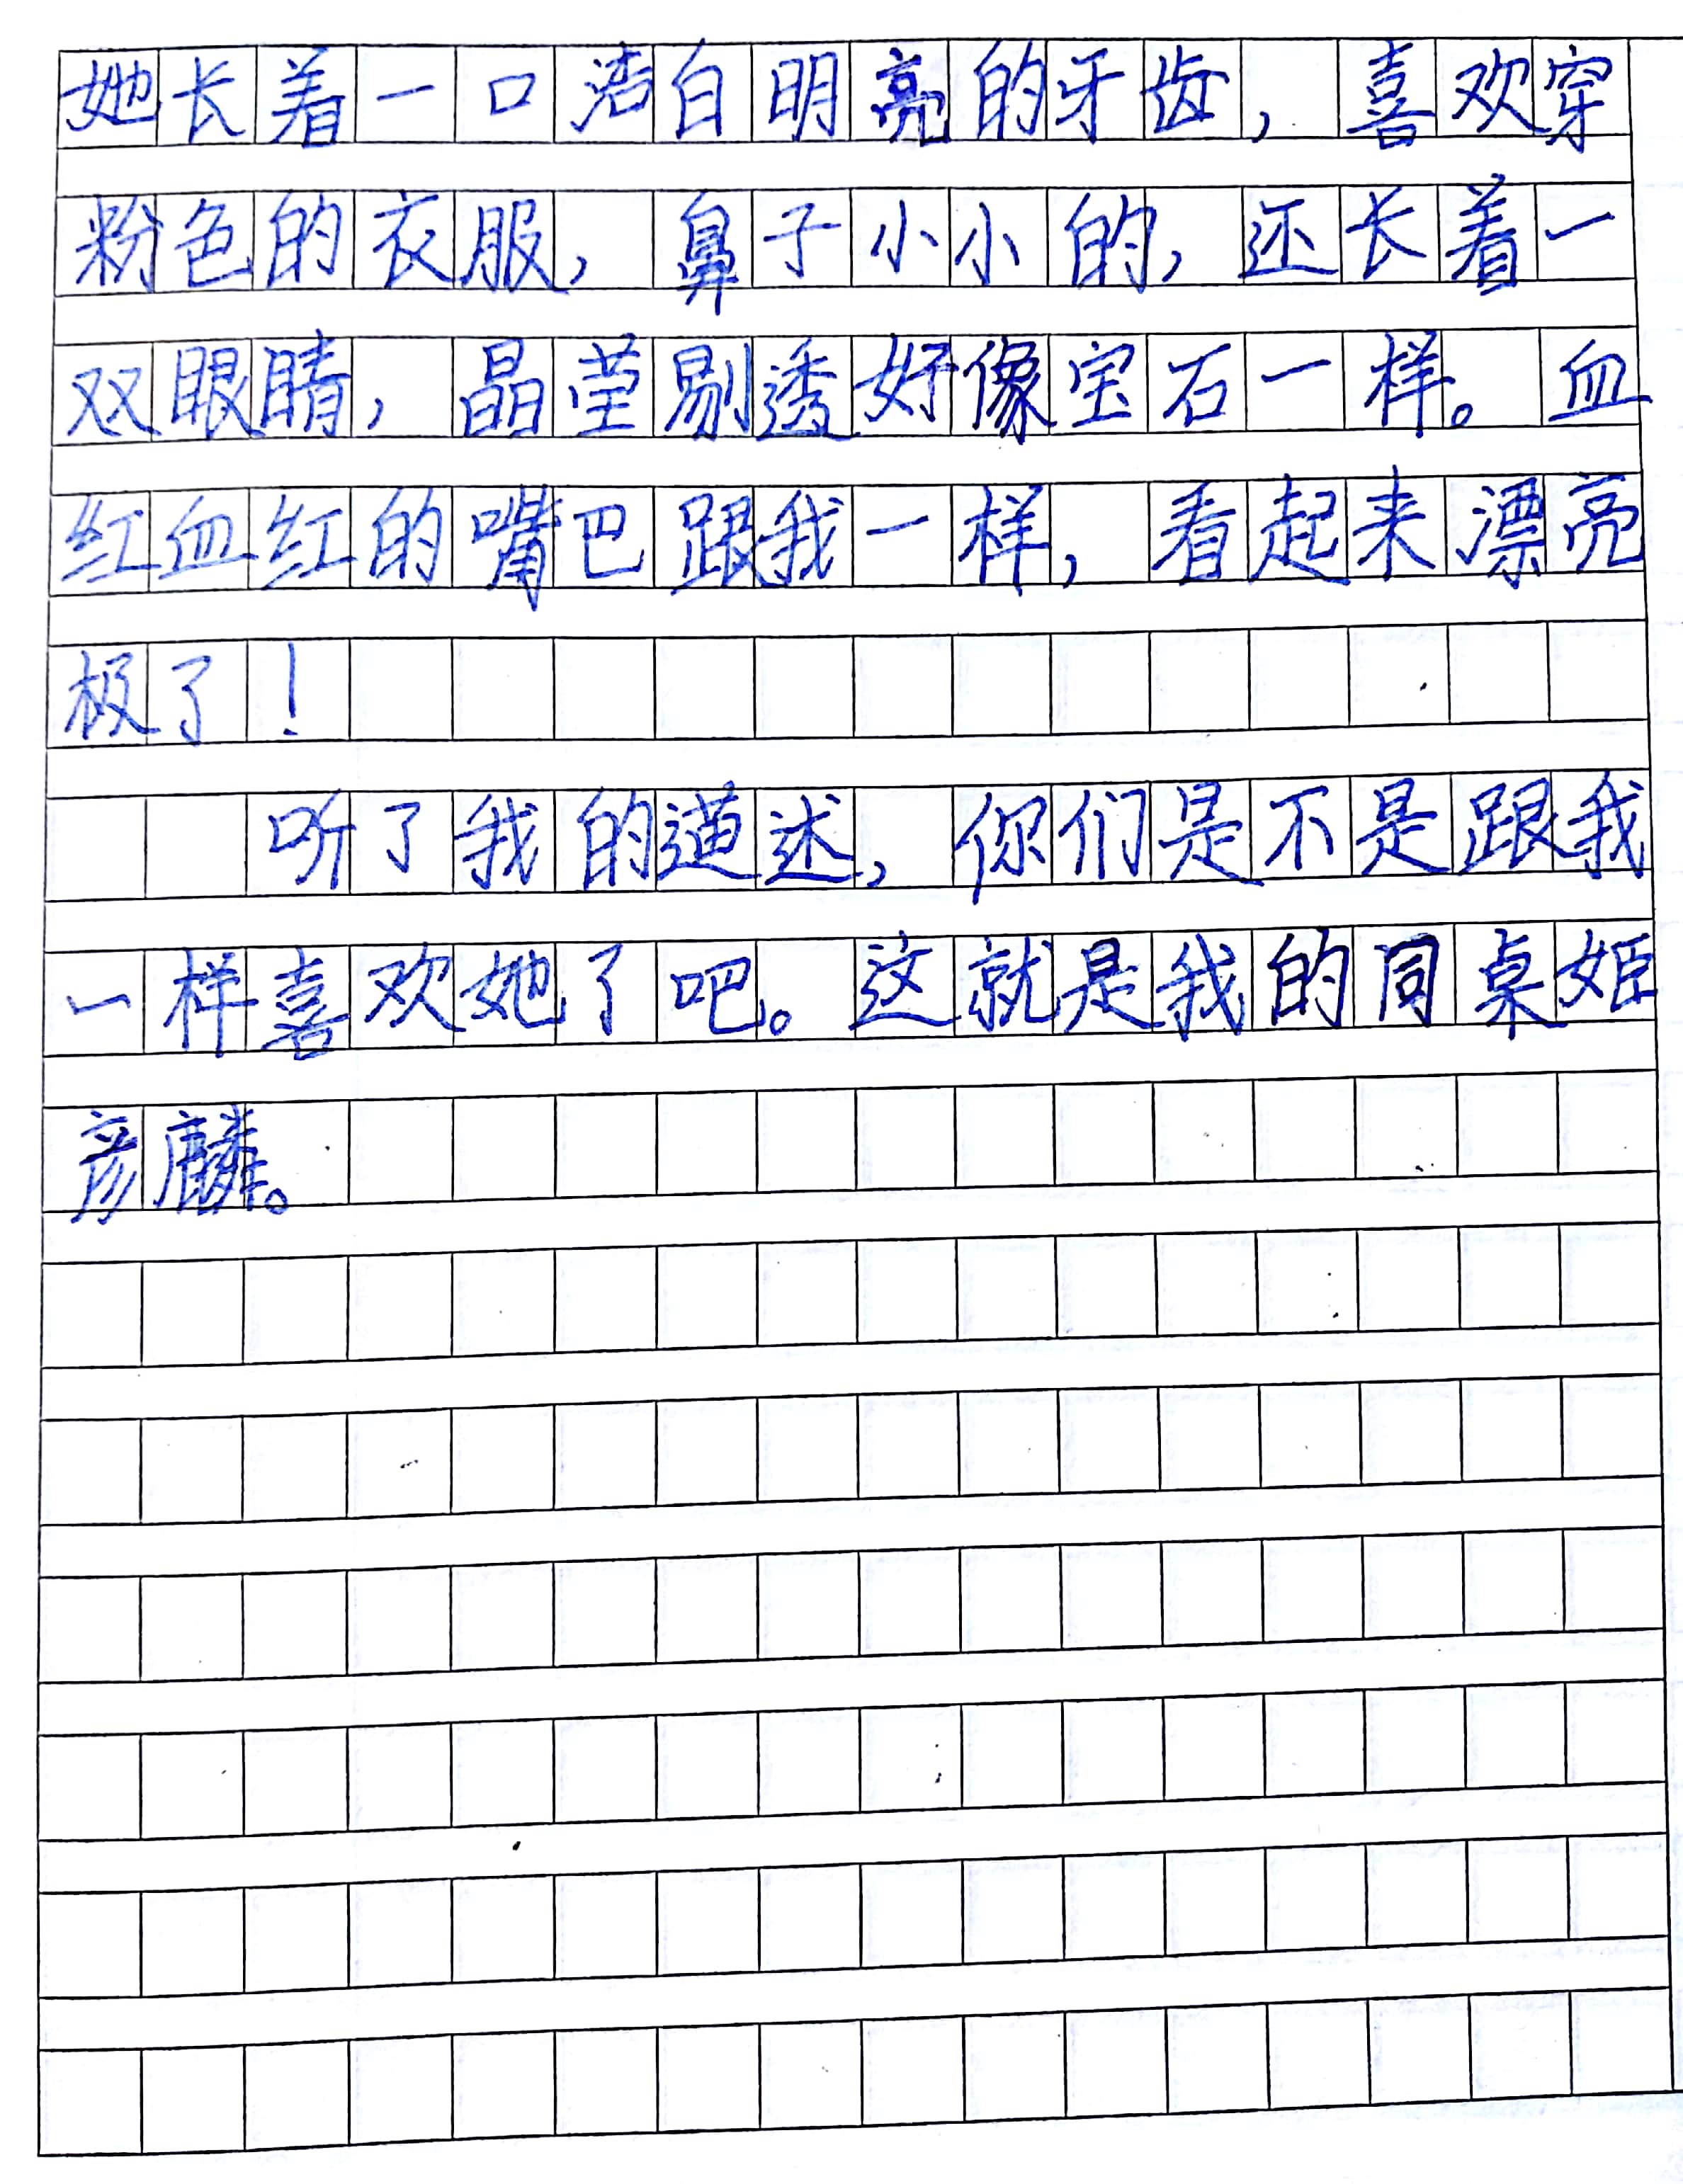 她长着一口洁白明亮的牙齿，喜欢穿
粉色的衣服，鼻子小小的，还长着一
双眼睛，晶莹剔透好像宝石一样。血
红血红的嘴巴跟我一样，看起来漂亮
极了！
听了我的述，你们是不是跟我
一样喜欢她了吧。这就是我的同桌姬
彦麟。